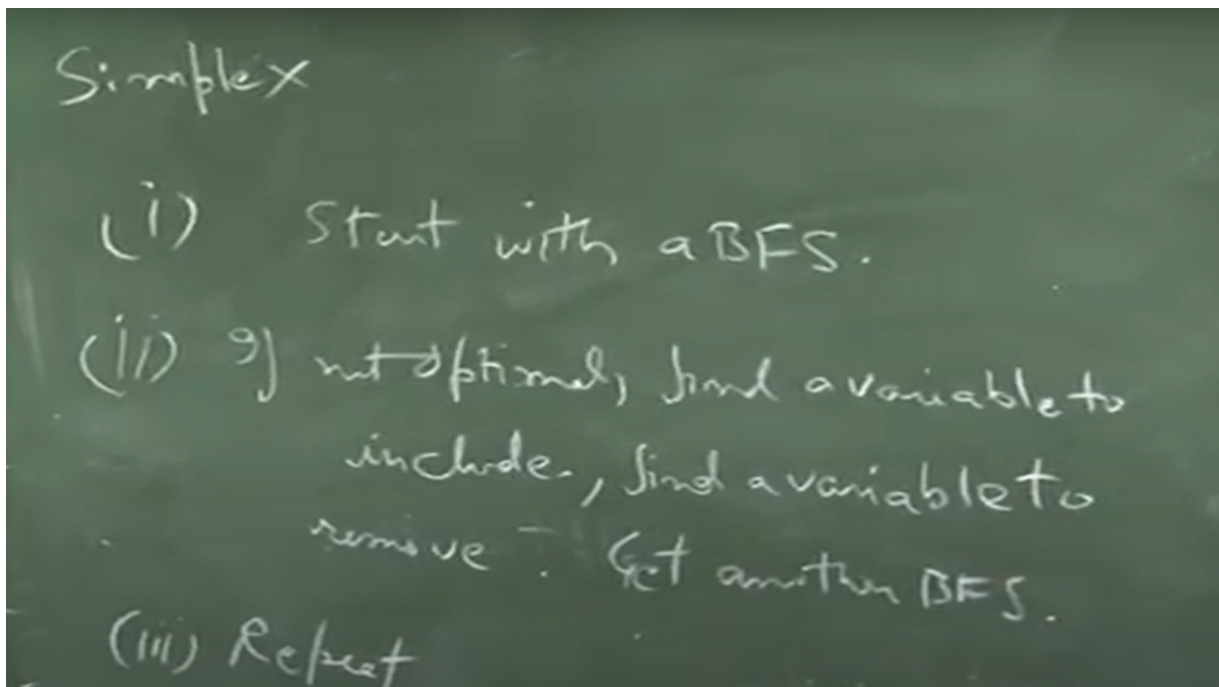 Simplex
(i) Start with a BFS.
(ii) If not optimal, find a variable to
include, find a variable to
remove. Get another BFS.
(iii) Repeat